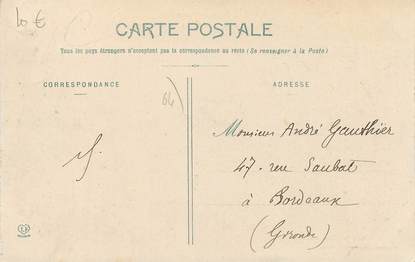 10 €
CARTE POSTALE
Tous les pays étrangers n'acceptent pas la correspondance au recto (Se renseigner à la Poste)
CORRESPONDANCE
ADRESSE
64
Monsieur André Gauthier
47 - rue Saubat
à Bordeaux
(Gironde)